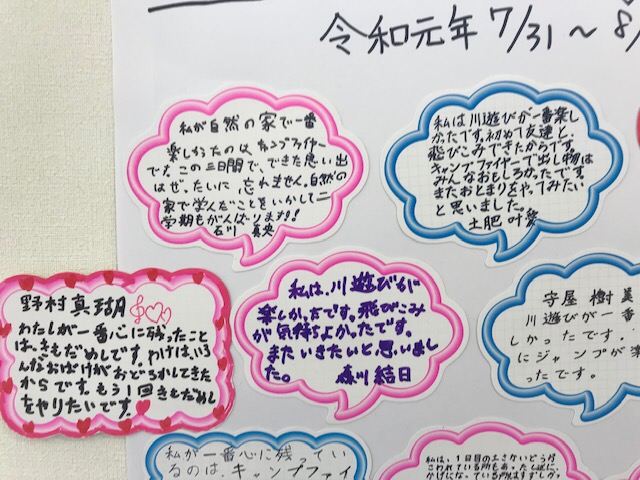 令和元年 7/31～8/
私が自然の家で一番
楽しかったのは、キャンプファイヤー
です。この三日間で、できた思い出
はぜったいに、忘れません。自然の
家で学んだことをいかして二
学期もがんばります!!
石川 真央
私は川遊びが一番楽し
かったです。初めて友達と、
飛びこみできたからです。
キャンプファイヤーで出し物は
みんなおもしろかったです。
またおとまりをやってみたい
と思いました。
土肥 叶愛
野村真瑚
わたしが一番心に残ったこと
は、きもだめしです。わけは、いろ
んなおばけがおどろかしてきた
からです。もう1回きもだめし
をやりたいです。
私は、川遊びが
楽しかったです。飛びこみ
が気持ちよかったです。
またいきたいと思いまし
た。 森川結日
守屋 樹
川遊びが一番
しかったです。
にジャンプが楽
ったです。
私が一番心に残ってい
るのは、キャンプファイ
私は、1日目の
こわれている所もあった